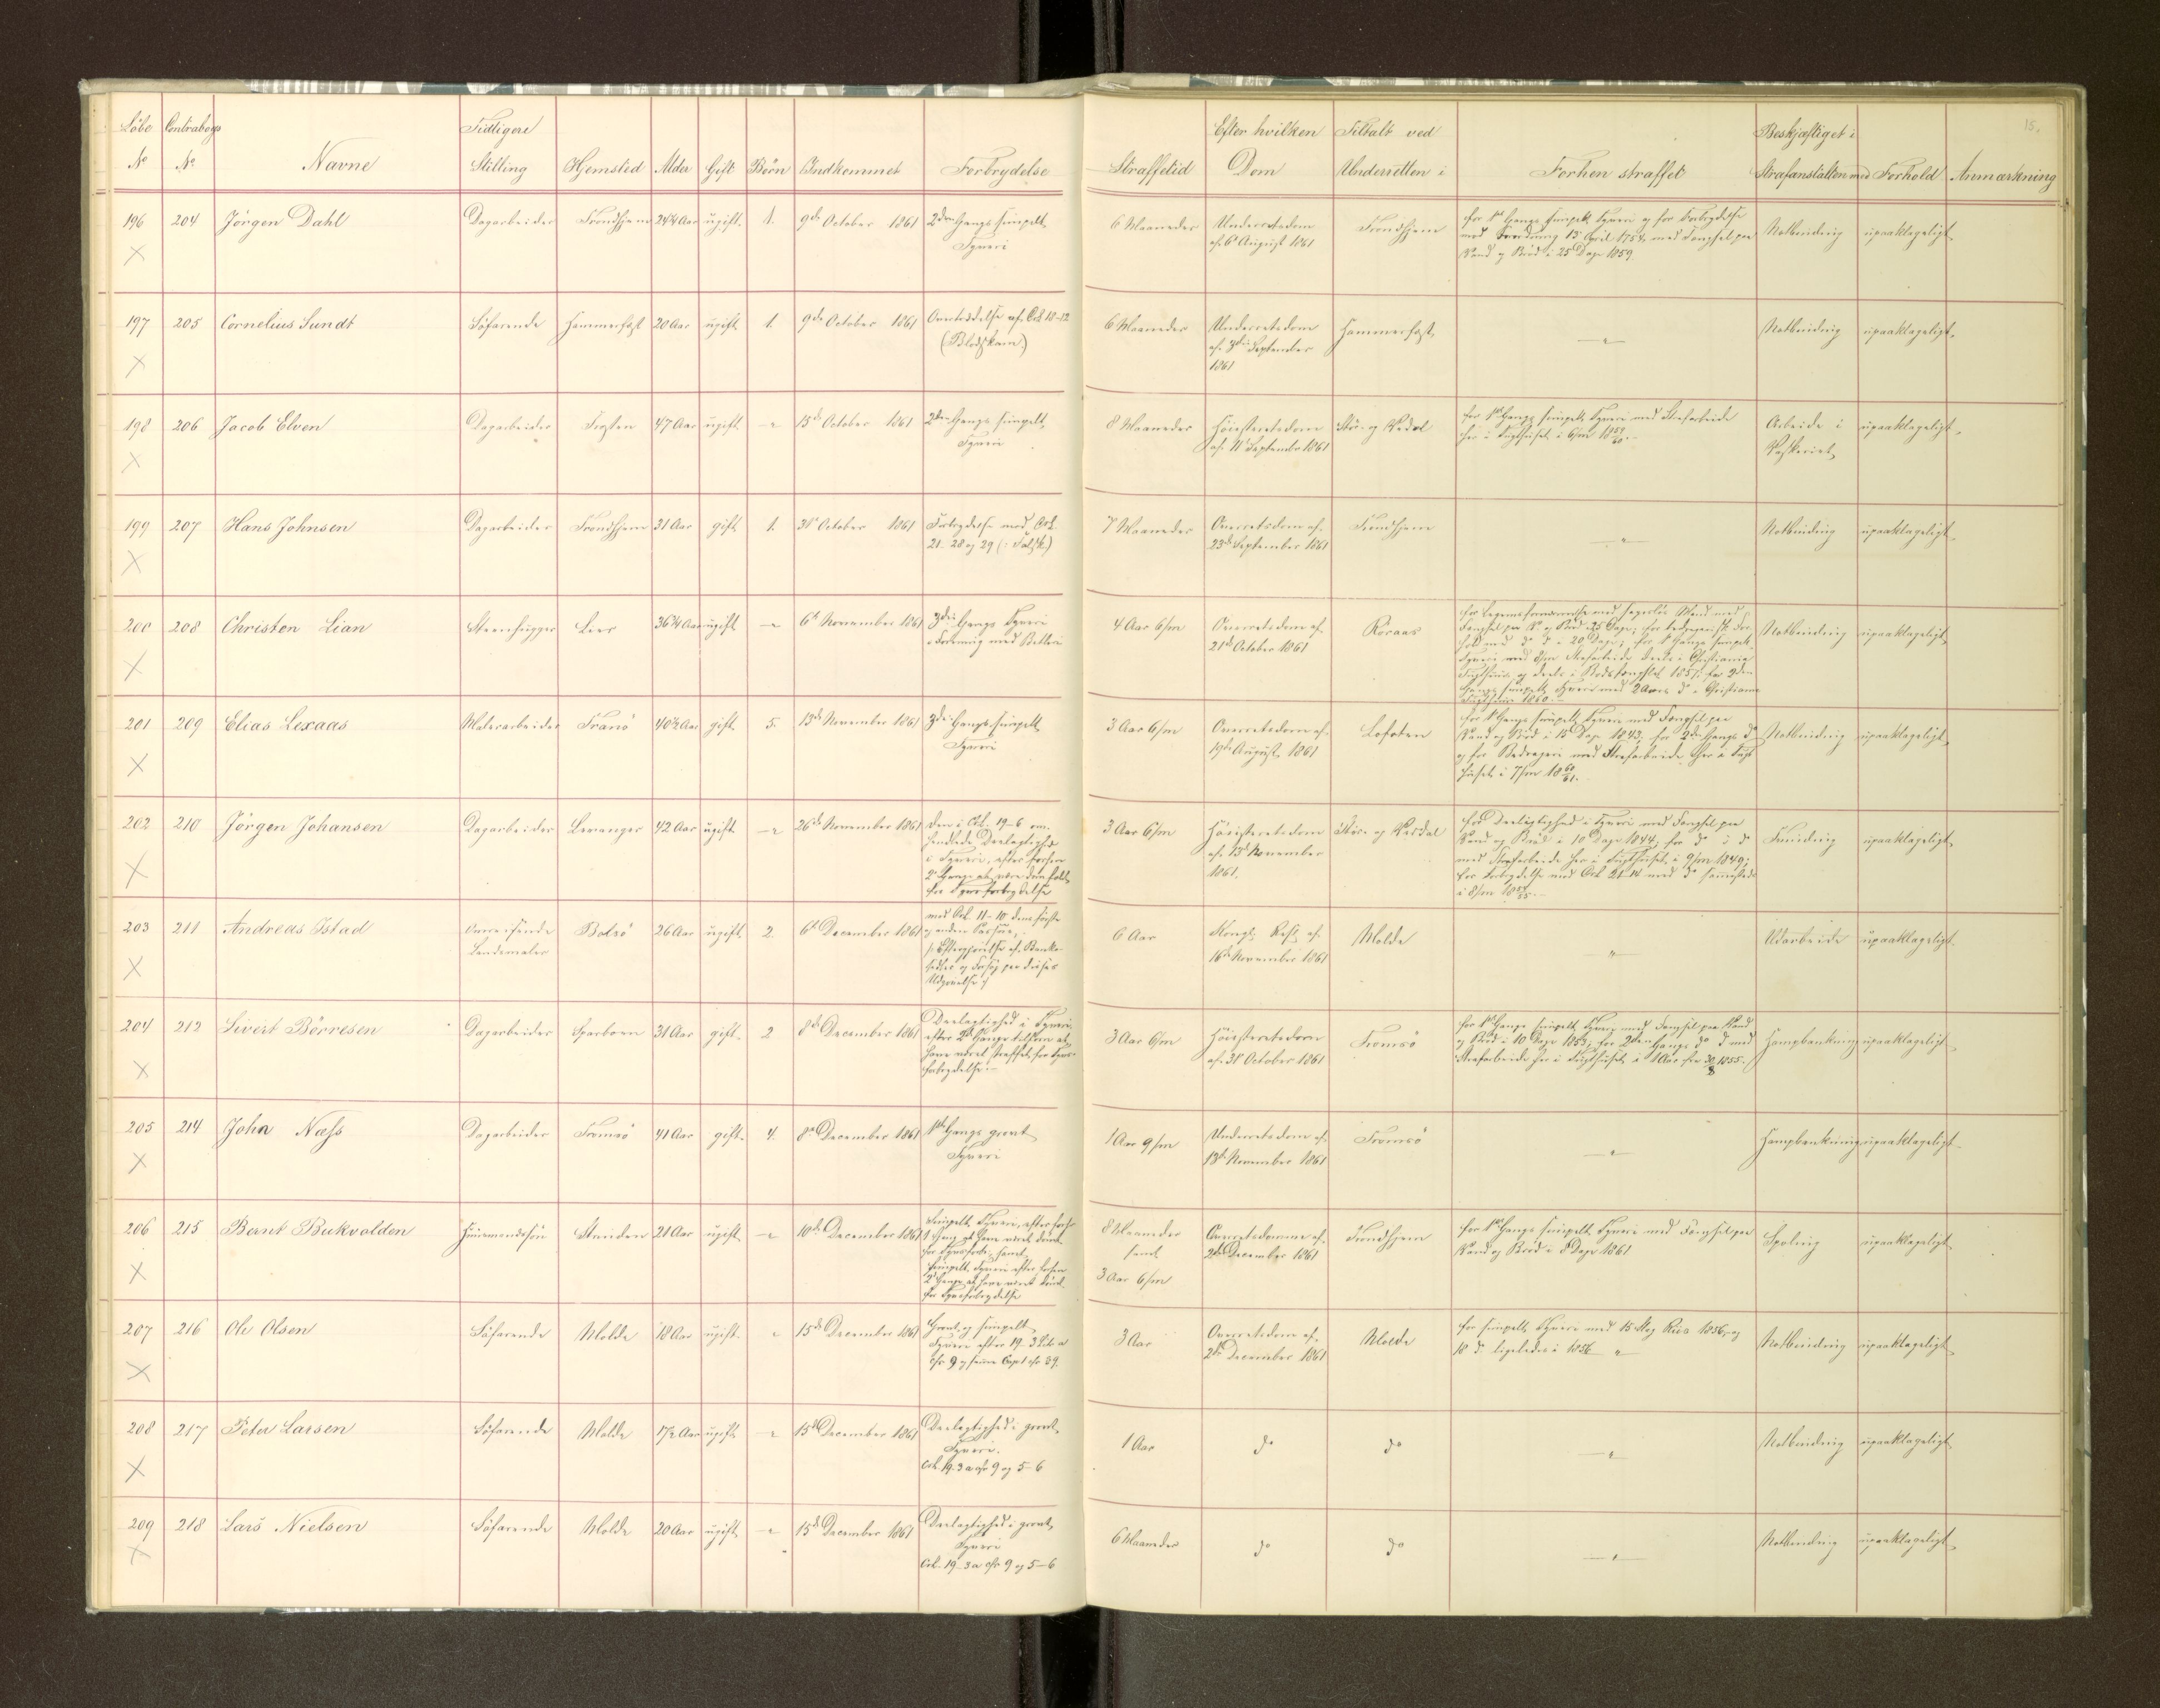 15.
Löbe No Contrabogs No Navne Tidligere Stilling Hjemsted Alder Gift Börn Indkommet Forbrydelse Straffetid Efter hvilken Dom Tiltalt ved Underretten i Forhen straffet Beskjæftiget i Strafanstalten med Forhold Anmærkning
196 204 Jörgen Dahl Dagarbeider Trondhjem 24 Aar ugift 1. 9de October 1861 2den Gangs simpelt Tyveri 6 Maaneder Underretsdom af 6te August 1861 Trondhjem for 1ste Gangs simpelt Tyveri og for Forbrydelse mod Forordning 13 April 1754 med Fængsel paa Vand og Bröd i 25 Dage 1859. Notbinding upaaklageligt
197 205 Cornelius Sundt Söfarende Hammerfest 20 Aar ugift 1. 9de October 1861 Overtrædelse af Crl 18-12 (Blodskam) 6 Maaneder Underretsdom af 3die September 1861 Hammerfest — Notbinding upaaklageligt.
198 206 Jacob Elven Dagarbeider Frosten 47 Aar ugift — 15de October 1861 2den Gangs simpelt Tyveri 8 Maaneder Höiesteretsdom af 11te September 1861 Stör- og Værdal for 1ste Gangs simpelt Tyveri med Strafarbeide her i Tugthuset i 6/m 1859/60. Arbeide i Vaskeriet upaaklageligt.
199 207 Hans Johnsen Dagarbeider Trondhjem 31 Aar gift 1. 31te October 1861 Forbrydelse mod Crl 21-28 og 29 (: Falsk) 7 Maaneder Overretsdom af 23de September 1861 Trondhjem — Notbinding upaaklageligt
200 208 Christen Lian Steenhugger Lier 36 Aar ugift — 6te November 1861 3die Gangs Tyveri i Forening med Betleri 4 Aar 6/m Overretsdom af 21de October 1861 Röraas Fængsel paa V. og Bröd 25 Dage; i 20 Dage; for 1ste Gangs simpelt Tyveri med 8/m Strafarbeide deels i Christiania Tugthuus og deels i Bodsfængslet 1857; for 2den Gangs simpelt Tyveri med 2 Aars do i Christiania Tugthuus 1860. Notbinding upaaklageligt
201 209 Elias Lexaas Malerarbeider Tranö 40½ Aar gift 5. 13de November 1861 3die Gangs simpelt Tyveri 3 Aar 6/m Overretsdom af 19de August 1861 Lofoten for 1ste Gangs simpelt Tyveri med Fængsel paa Vand og Bröd i 15 Dage 1843; for 2den Gangs do og for Bedrageri med Strafarbeide her i Tugthuset i 7/m 1860/61. Notbinding upaaklageligt
202 210 Jörgen Johansen Dagarbeider Levanger 42 Aar ugift — 26de November 1861 den i Crl. 19-6 omhandlede Deelagtighed i Tyveri, efter forhen 2de Gange at være domfældt for Tyvsforbrydelse 3 Aar 6/m Höiesteretsdom af 13de November 1861. Stör- og Værdal for Deelagtighed i Tyveri med Fængsel paa Vand og Bröd i 10 Dage 1844; for do i do med Strafarbeide her i Tugthuset i 9/m 1849; for Forbrydelse mod Crl 21-14 med do sammesteds i 8/m 1854/55. upaaklageligt
203 211 Andreas Istad Omreisende Landsmaler Bolsö 26 Aar ugift 2. 6te December 1861 mod Crl. 11-10 dens förste og anden Passus, (: Eftergjörelse af Bankosedler og Forsög paa disses Udgivelse :) 6 Aar Kongl. Resl. af 16de November 1861 Molde — Udarbeide upaaklageligt.
204 212 Sivert Börresen Dagarbeider Sparboen 31 Aar gift 2 8de December 1861 Deelagtighed i Tyveri, efter 2de Gange tilforn at have været straffet for Tyvsforbrydelse. 3 Aar 6/m Höiesteretsdom af 31te October 1861 Tromsö for 1ste Gangs simpelt Tyveri med Fængsel paa Vand og Bröd i 10 Dage 1853; for 2den Gangs do do med Strafarbeide her i Tugthuset i 1 Aar fra 30/8 1855. Hampbankning upaaklageligt
205 214 John Næss Dagarbeider Tromsö 41 Aar gift 4. 8de December 1861 1ste Gangs grovt Tyveri 1 Aar 9/m Underretsdom af 13de November 1861 Tromsö — Hampbankning upaaklageligt.
206 215 Bernt Bukvolden Huusmandssön Strinden 21 Aar ugift — 10de December 1861 simpelt Tyveri, efter forhen 1 Gang at have været dömt for Tyvsforbr. samt simpelt Tyveri efter forhen 2de Gange at have været dömt for Tyvsforbrydelse 8 Maaneder samt 3 Aar 6/m Overretsdomme af 2den December 1861 Trondhjem for 1ste Gangs simpelt Tyveri med Fængsel paa Vand og Bröd i 8 Dage 1861 Spoling upaaklageligt
207 216 Ole Olsen Söfarende Molde 18 Aar ugift — 15de December 1861 Grovt og simpelt Tyveri efter 19-3 Litr. a cfr 9 og samme Capt cfr 39. 3 Aar Overretsdom af 2den December 1861 Molde for simpelt Tyveri med 15 Slag Riis 1856, og 18 do ligeledes i 1856 Notbinding upaaklageligt
208 217 Peter Larsen Söfarende Molde 17½ Aar ugift — 15de December 1861 Deelagtighed i grovt Tyveri. Crl. 19-3 a cfr 9 og 5-6 1 Aar do do — Notbinding upaaklageligt
209 218 Lars Nielsen Söfarende Molde 20 Aar ugift — 15de December 1861 Deelagtighed i grovt Tyveri Crl. 19-3 a cfr 9 og 5-6 6 Maaneder do do — Notbinding upaaklageligt